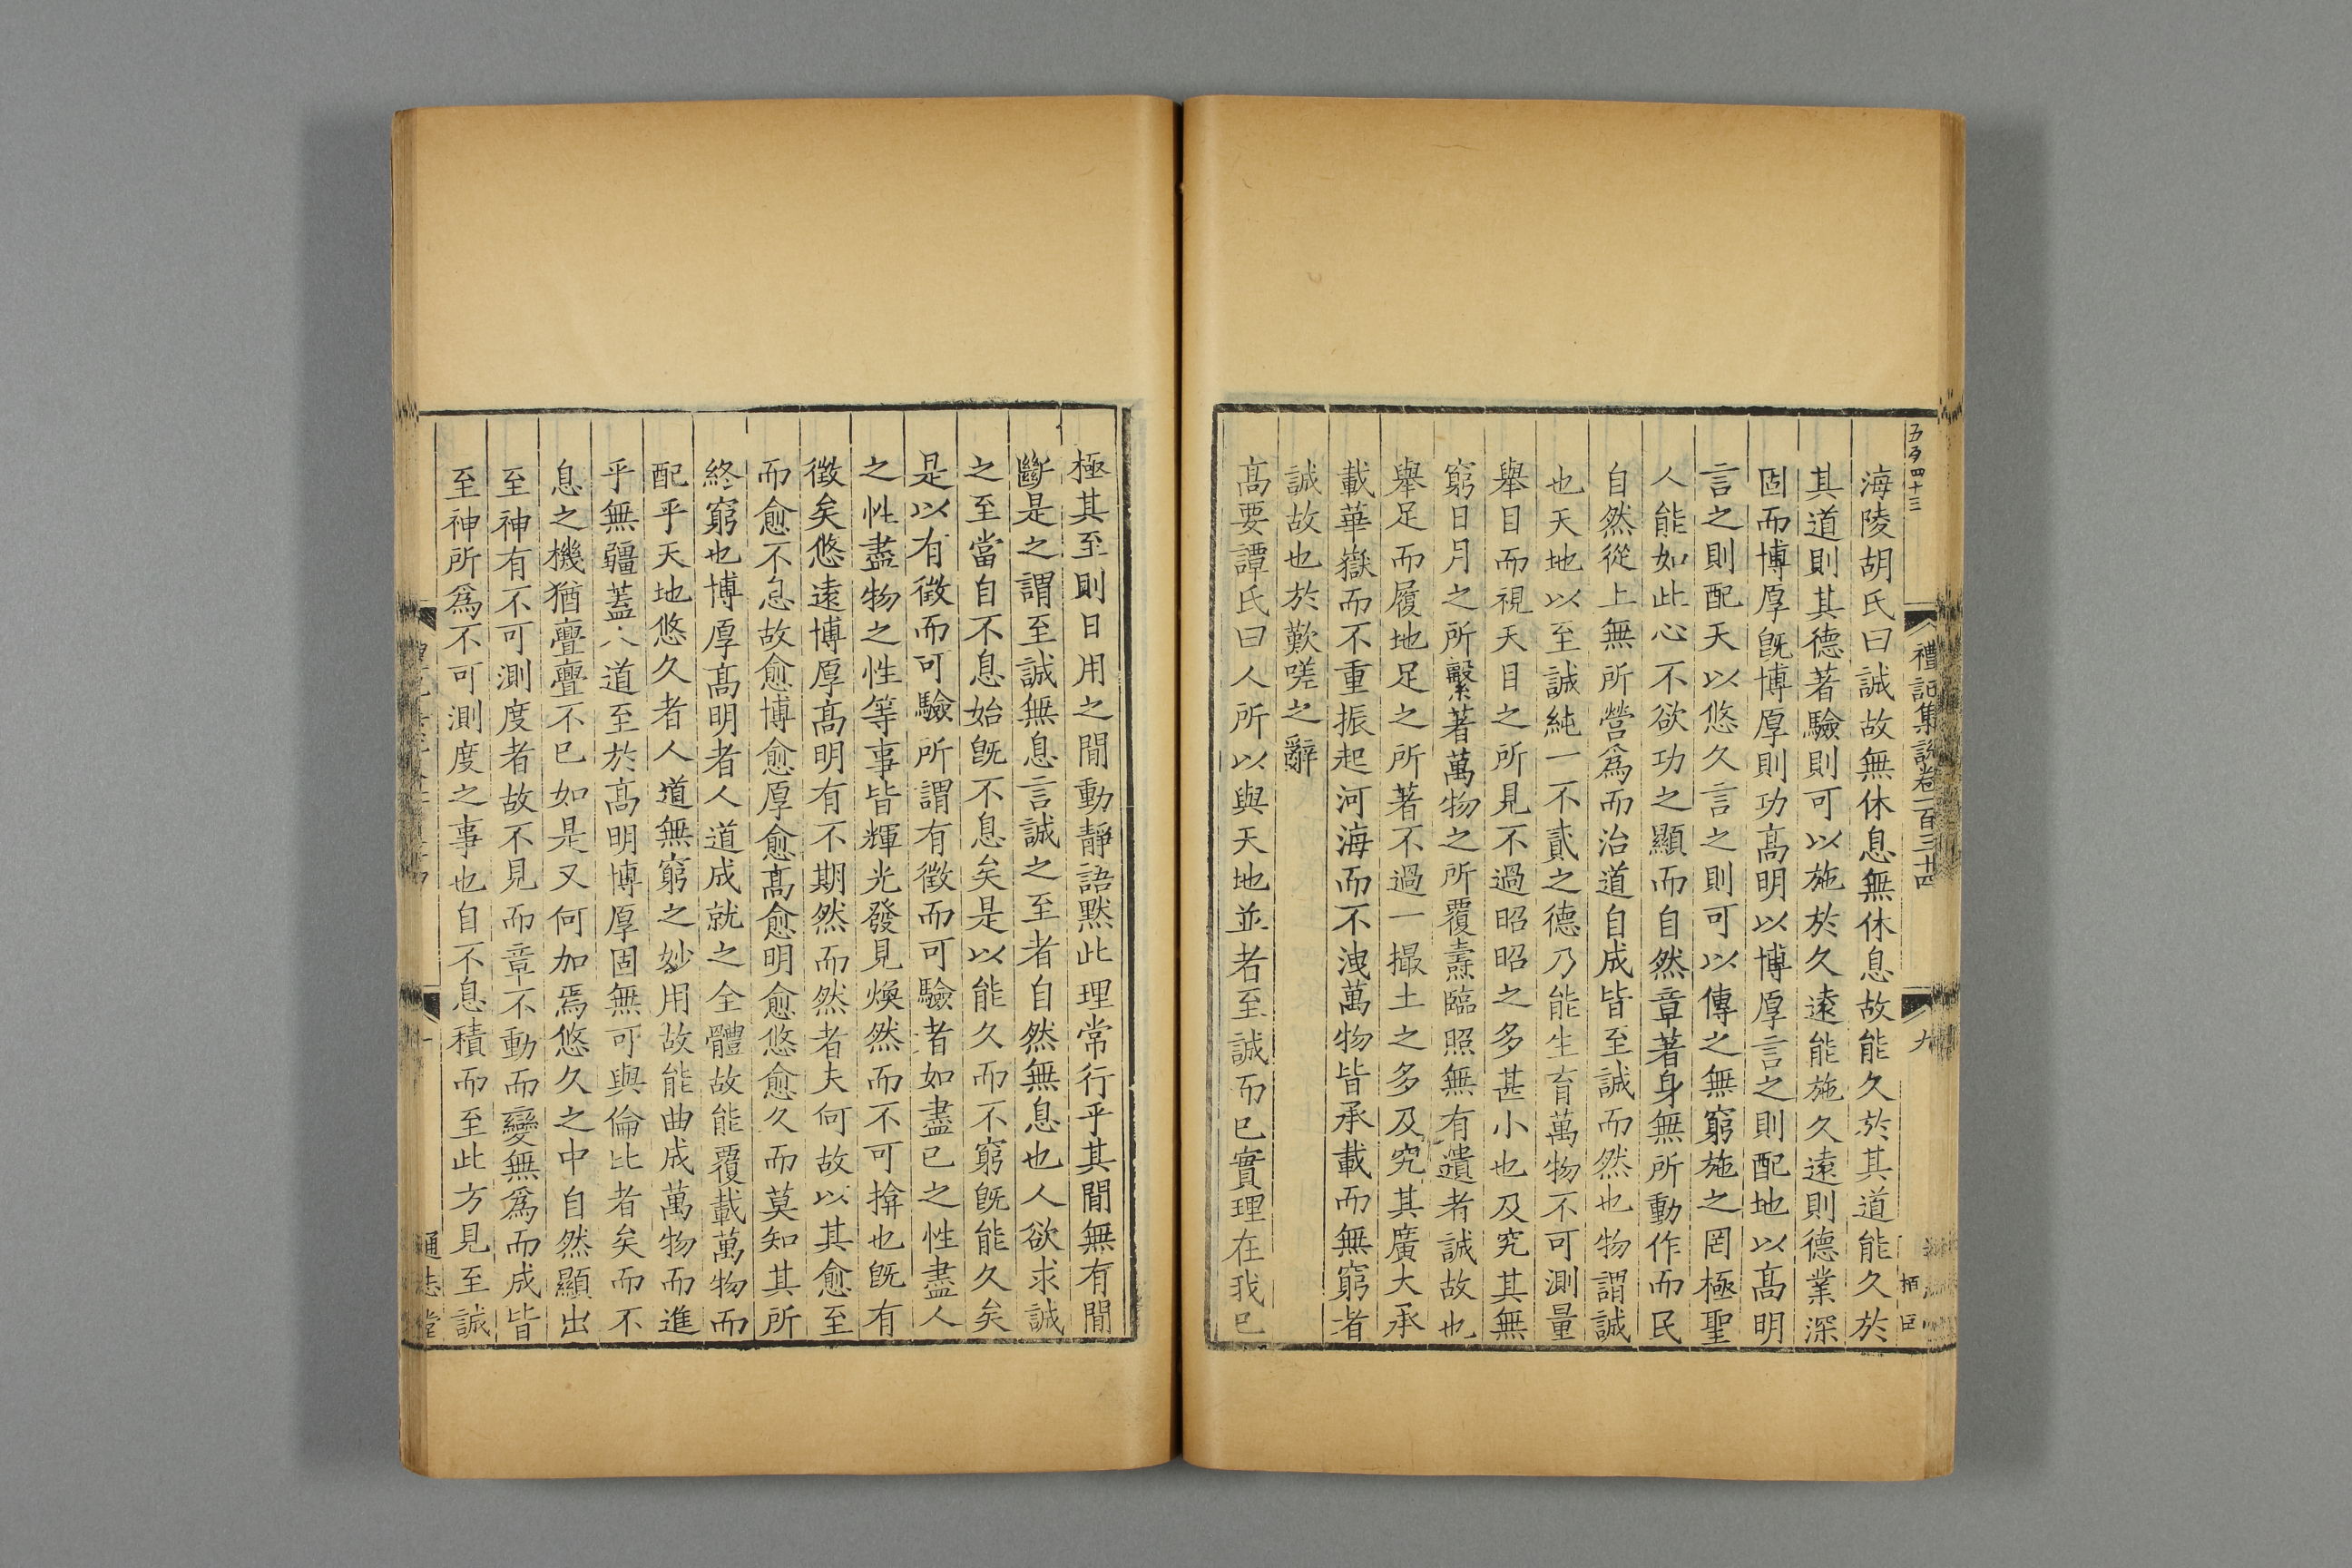 五百四十三
禮記集說卷一百三十四
九
海陵胡氏曰誠故無休息無休息故能久於其道能久於
其道則其德著驗則可以施於久遠能施久遠則德業深
固而博厚旣博厚則功高明以博厚言之則配地以高明
言之則配天以悠久言之則可以傳之無窮施之罔極聖
人能如此心不欲功之顯而自然章著身無所動作而民
自然從上無所營爲而治道自成皆至誠而然也物謂誠
也天地以至誠純一不貳之德乃能生育萬物不可測量
舉目而視天目之所見不過昭昭之多甚小也及究其無
窮日月之所繫著萬物之所覆燾臨照無有遺者誠故也
舉足而履地足之所著不過一撮土之多及究其廣大承
載華嶽而不重振起河海而不洩萬物皆承載而無窮者
誠故也於歎嗟之辭
高要譚氏曰人所以與天地並者至誠而已實理在我已
極其至則日用之間動靜語默此理常行乎其間無有間
斷是之謂至誠無息言誠之至者自然無息也人欲求誠
之至當自不息始旣不息矣是以能久而不窮旣能久矣
是以有徵而可驗所謂有徵而可驗者如盡已之性盡人
之性盡物之性等事皆輝光發見煥然而不可揜也旣有
徵矣悠遠博厚高明有不期然而然者夫何故以其愈至
而愈不息故愈博愈厚愈高愈明愈悠愈久而莫知其所
終窮也博厚高明者人道成就之全體故能覆載萬物而
配乎天地悠久者人道無窮之妙用故能曲成萬物而進
乎無疆蓋人道至於高明博厚固無可與倫比者矣而不
息之機猶亹亹不已如是又何加焉悠久之中自然顯出
至神有不可測度者故不見而章不動而變無爲而成皆
至神所爲不可測度之事也自不息積而至此方見至誠
通志堂